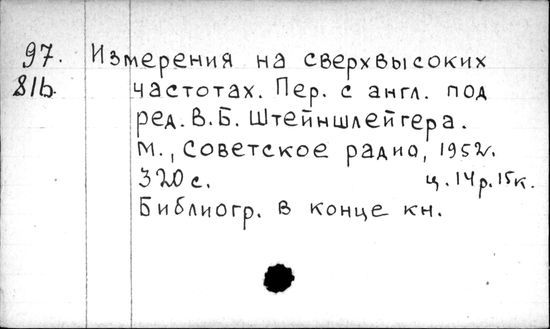 97. Измерения на сверхвысоких
81b. частотах. Пер. с англ. под
ред. В. Б. Штейншлейгера.
М., Советское радио, 1952.
320 с. ц. 14 р. 15 к.
Библиогр. в конце кн.